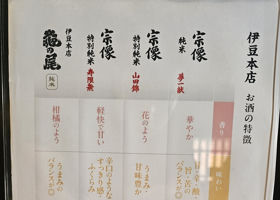 伊豆本店
お酒の特徴
香り
味わい
宗像
純米
夢一献
華やか
旨・苦の
バランスが◎
宗像
特別純米
山田錦
花のよう
うまみ・
甘味豊か
宗像
特別純米
寿限無
軽快で甘い
辛口のような
すっきり感・
ふくらみ
伊豆本店
亀の尾
純米
柑橘のよう
うまみの
バランスが◎